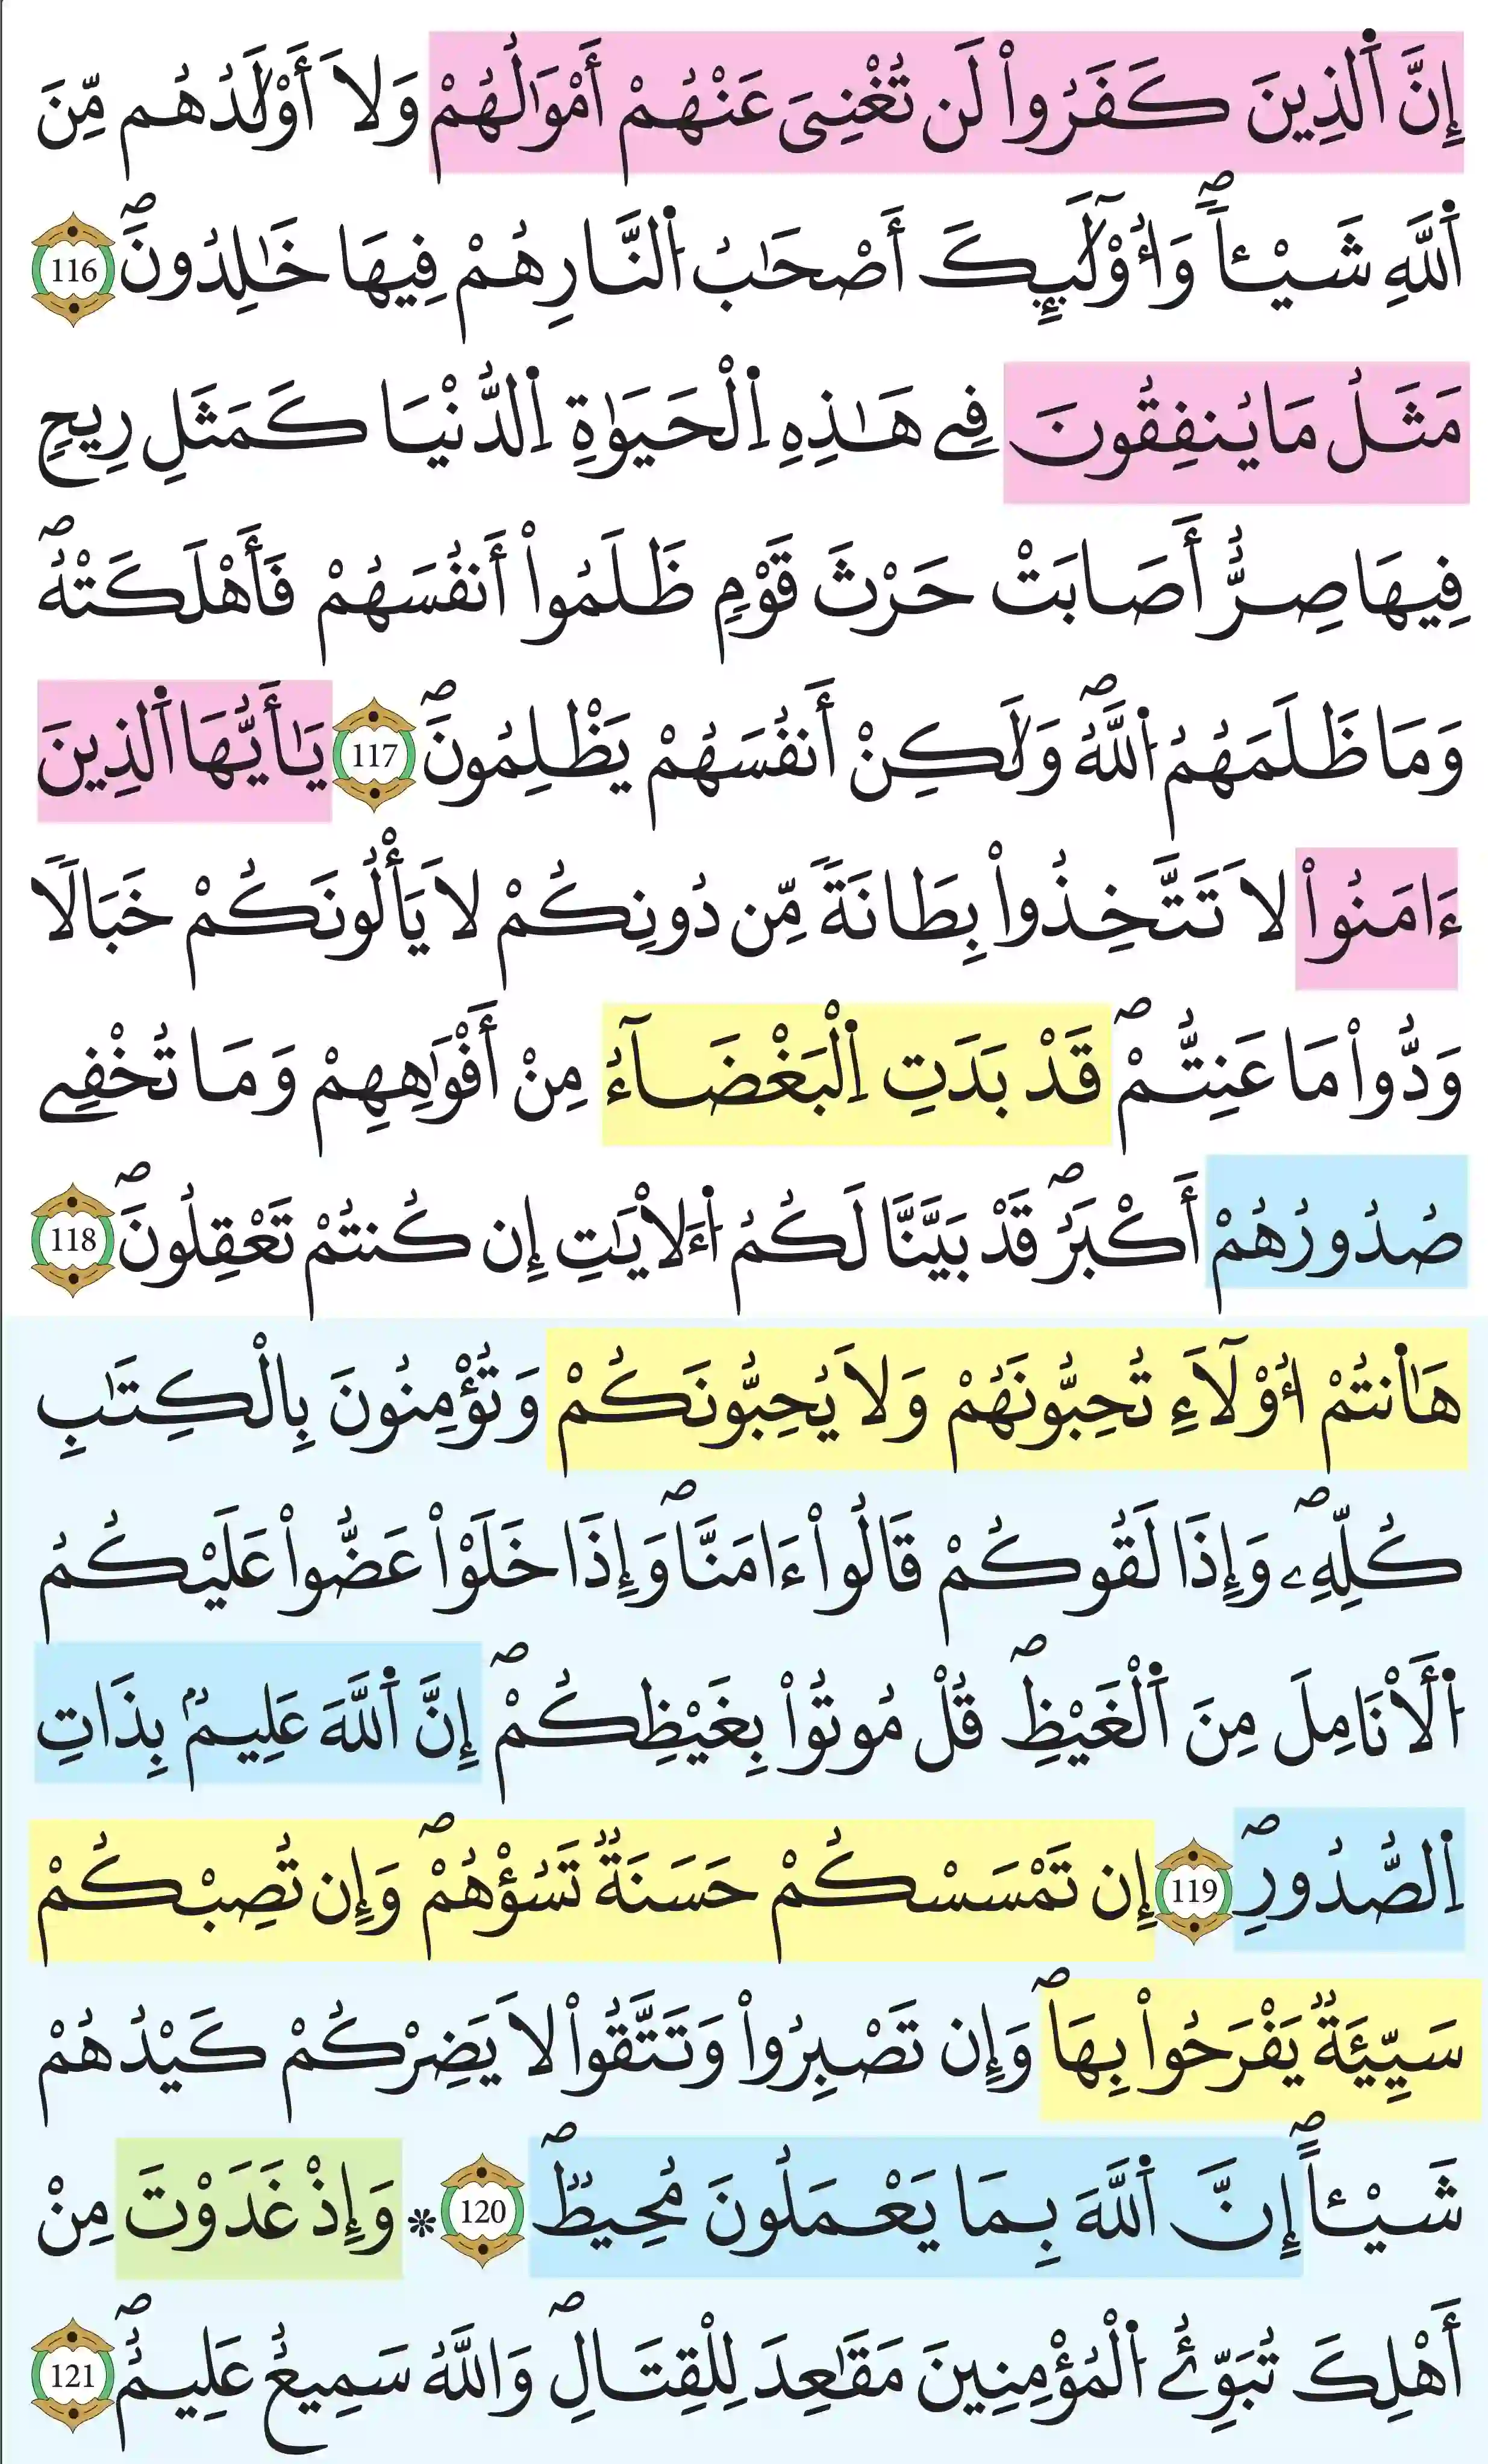 إِنَّ اَ۬لذِينَ كَفَرُواْ لَن تُغْنِيَ عَنْهُمْ أَمْوَٰلُهُمْ وَلَآ أَوْلَٰدُهُم مِّنَ
اَ۬للَّهِ شَيْـٔاًۖ وَأُوْلَٰٓئِكَ أَصْحَٰبُ اُ۬لنَّارِ هُمْ فِيهَا خَٰلِدُونَۖ 116
مَثَلُ مَا يُنفِقُونَ فِے هَٰذِهِ اِ۬لْحَيَوٰةِ اِ۬لدُّنْيَا كَمَثَلِ رِيحٖ
فِيهَا صِرٌّ أَصَابَتْ حَرْثَ قَوْمٖ ظَلَمُواْ أَنفُسَهُمْ فَأَهْلَكَتْهُۖ
وَمَا ظَلَمَهُمُ اُ۬للَّهُۖ وَلَٰكِنْ أَنفُسَهُمْ يَظْلِمُونَۖ 117 يَٰٓأَيُّهَا اَ۬لذِينَ
ءَامَنُواْ لَا تَتَّخِذُواْ بِطَانَةٗ مِّن دُونِكُمْ لَا يَأْلُونَكُمْ خَبَالٗا
وَدُّواْ مَا عَنِتُّمْۖ قَدْ بَدَتِ اِ۬لْبَغْضَآءُ مِنْ أَفْوَٰهِهِمْ وَمَا تُخْفِے
صُدُورُهُمْ أَكْبَرُۖ قَدْ بَيَّنَّا لَكُمُ اُ۬لَأيَٰتِ إِن كُنتُمْ تَعْقِلُونَۖ 118
هَٰٓأَنتُمْ أُوْلَآءِ تُحِبُّونَهُمْ وَلَا يُحِبُّونَكُمْ وَتُؤْمِنُونَ بِالْكِتَٰبِ
كُلِّهِۦۖ وَإِذَا لَقُوكُمْ قَالُواْ ءَامَنَّاۖ وَإِذَا خَلَوْاْ عَضُّواْ عَلَيْكُمُ
اُ۬لَأنَامِلَ مِنَ اَ۬لْغَيْظِۖ قُلْ مُوتُواْ بِغَيْظِكُمْۖ إِنَّ اَ۬للَّهَ عَلِيمُۢ بِذَاتِ
اِ۬لصُّدُورِۖ 119 إِن تَمْسَسْكُمْ حَسَنَةٞ تَسُؤْهُمْۖ وَإِن تُصِبْكُمْ
سَيِّئَةٞ يَفْرَحُواْ بِهَاۖ وَإِن تَصْبِرُواْ وَتَتَّقُواْ لَا يَضِرْكُمْ كَيْدُهُمْ
شَيْـٔاًۖ إِنَّ اَ۬للَّهَ بِمَا يَعْمَلُونَ مُحِيطٞۖ 120 * وَإِذْ غَدَوْتَ مِنْ
أَهْلِكَ تُبَوِّئُ اُ۬لْمُؤْمِنِينَ مَقَٰعِدَ لِلْقِتَالِۖ وَاللَّهُ سَمِيعٌ عَلِيمٌۖ 121